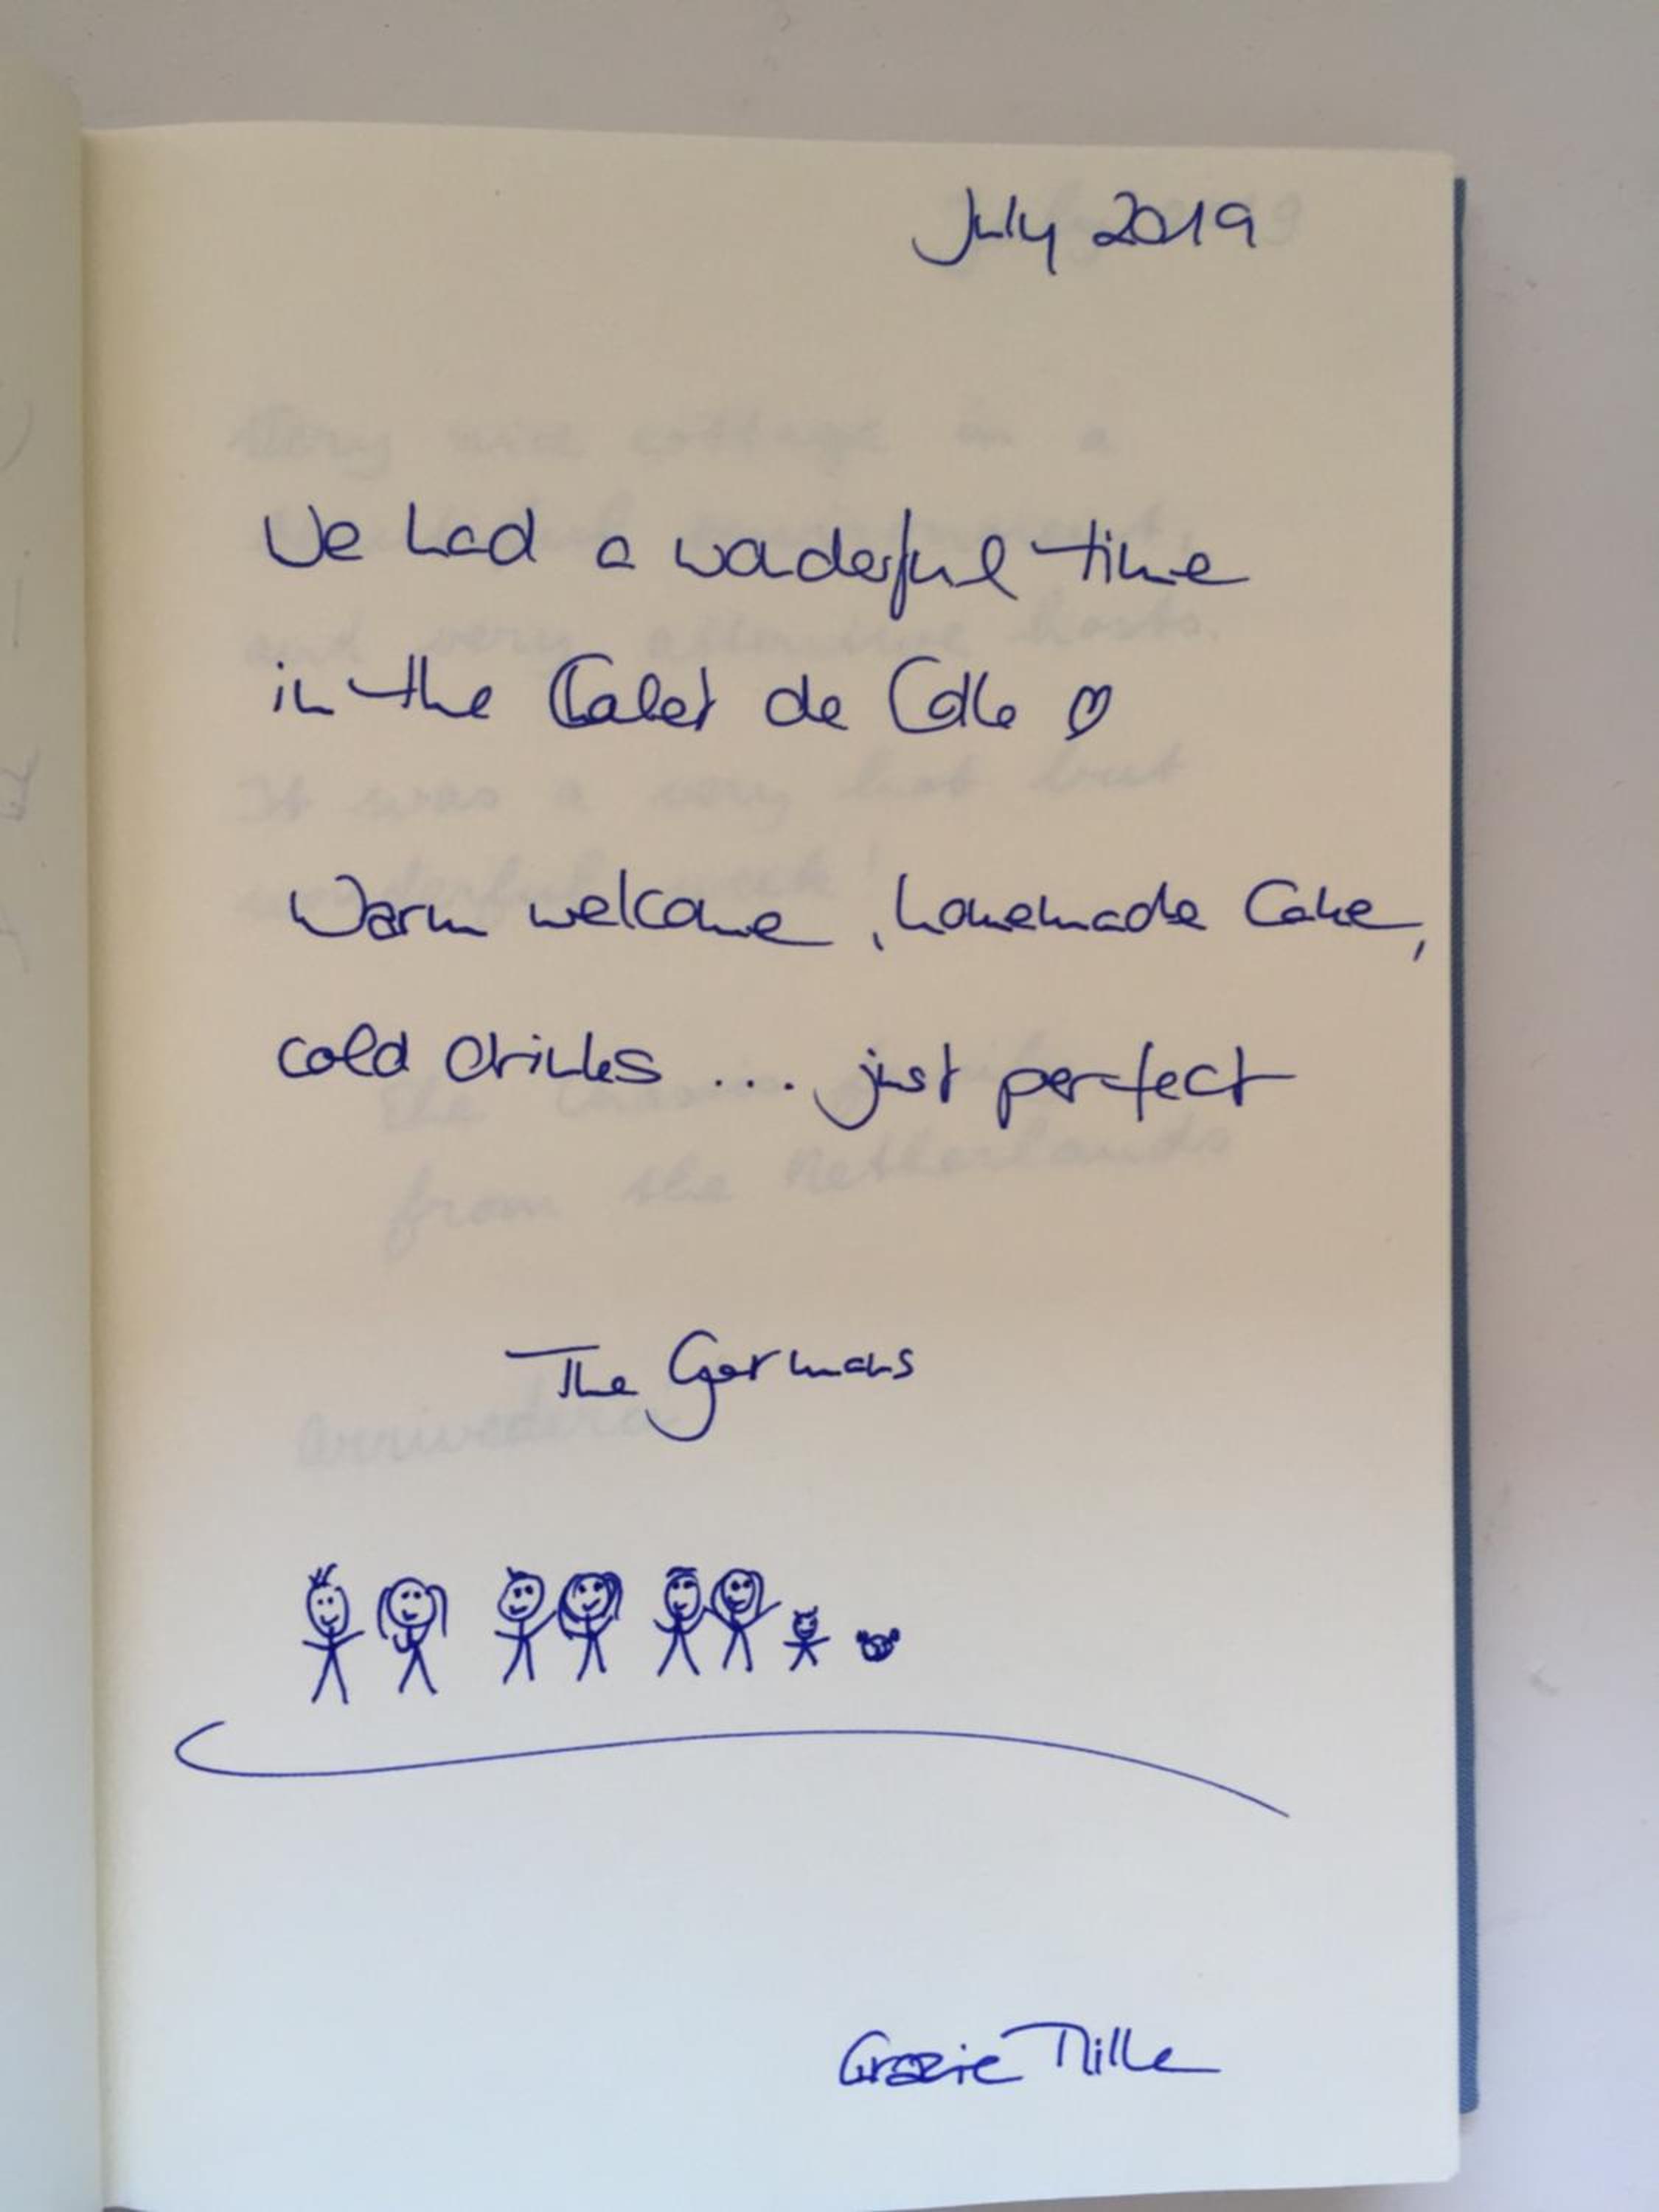 July 2019
We had a wonderful time
in the Calet de Colle
Warm welcome, homemade Cake,
cold drinks .... just perfect
The Germans
Grazie Mille